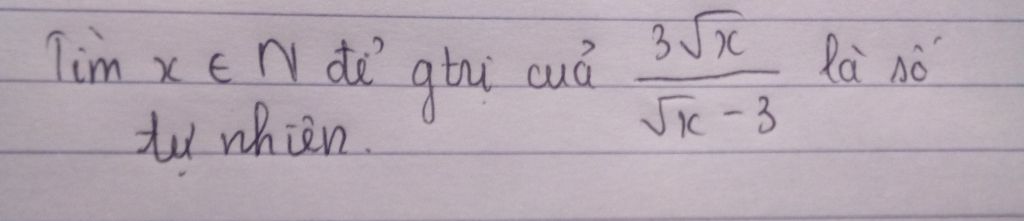 Tìm x ∈ N để gtrị của 3√x / √x - 3 là số
tự nhiên.